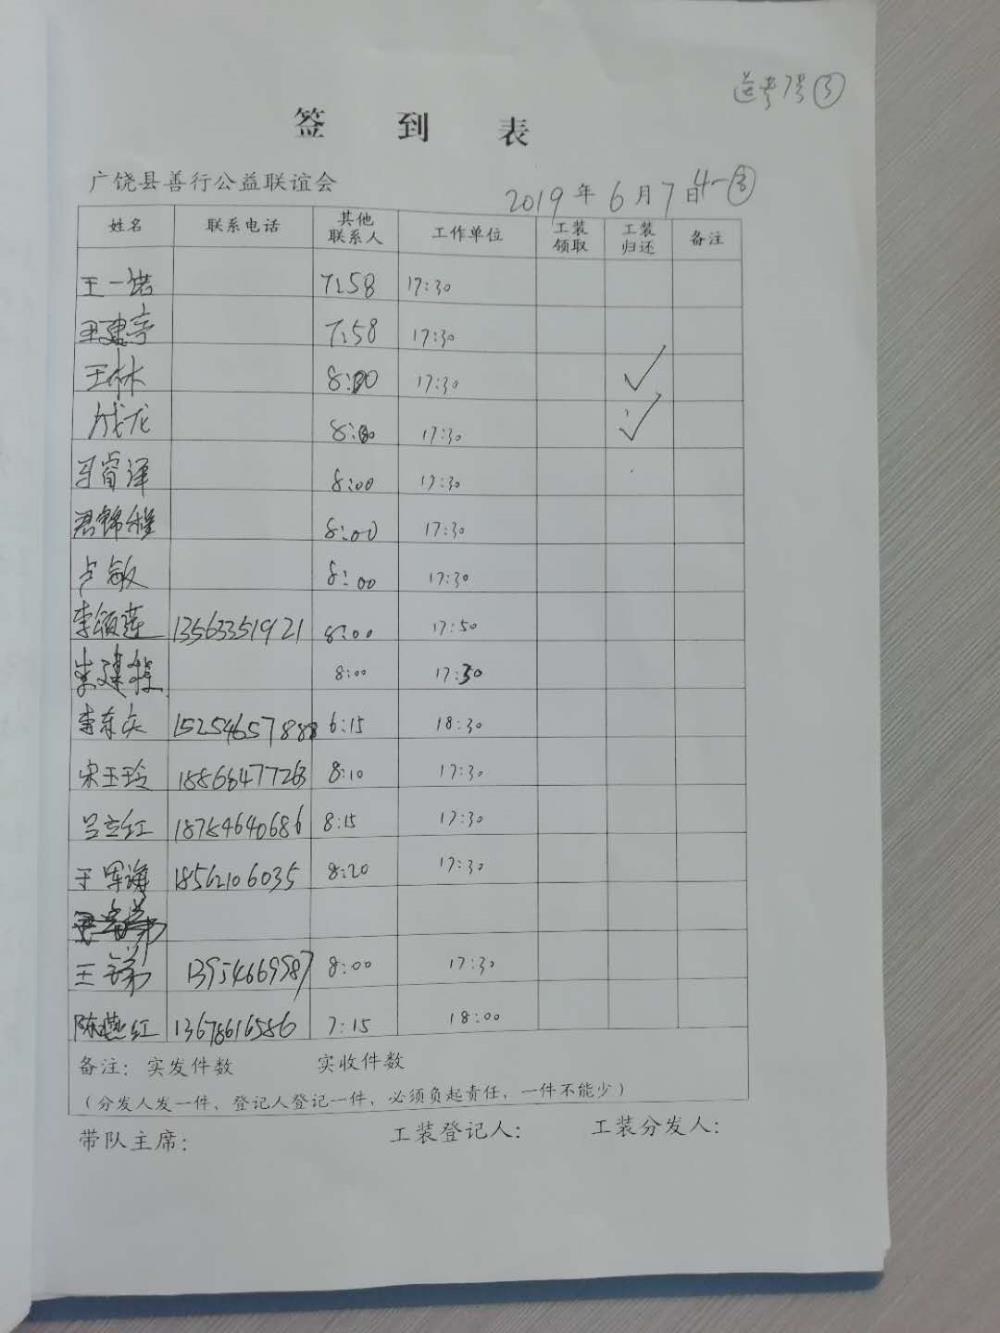 送考7号③
签到表
广饶县善行公益联谊会
2019年6月7日4-③
姓名 联系电话 其他联系人 工作单位 工装领取 工装归还 备注
王一诺 7:58 17:30
王建亭 7:58 17:30
王林 8:00 17:30 ✓
成龙 8:00 17:30 ✓
马睿泽 8:00 17:30
8:00 17:30
卢敏 8:00 17:30
李颂莲 13563351921 8:00 17:50
8:00 17:30
李东庆 15254657888 6:15 18:30
宋玉玲 18866477263 8:10 17:30
吕立红 18754640686 8:15 17:30
王军海 18562106035 8:20 17:30
王锦 13954669987 8:00 17:30
陈燕红 13678616586 7:15 18:00
备注：实发件数 实收件数
（分发人发一件、登记人登记一件，必须负起责任，一件不能少）
带队主席： 工装登记人： 工装分发人：